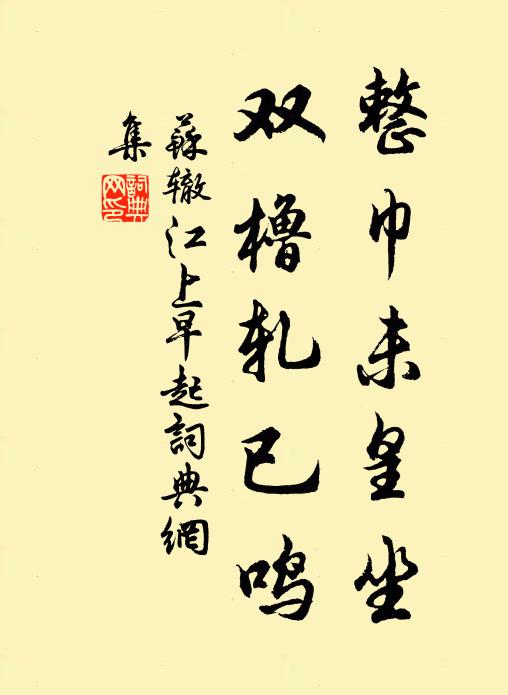 整巾未皇坐
双橹轧已鸣
蘇辙江上早起詞典網
集
詞典网印